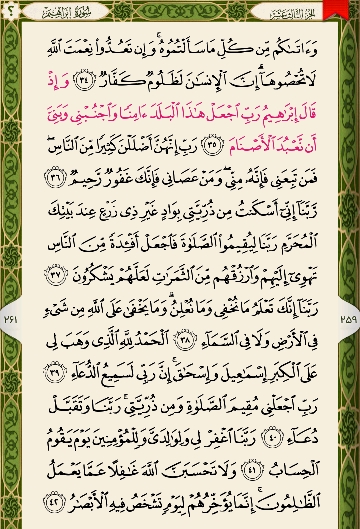 سورة إبراهيم
الجزء الثالث عشر
وَءَاتَىٰكُم مِّن كُلِّ مَا سَأَلْتُمُوهُ ۚ وَإِن تَعُدُّوا۟ نِعْمَتَ ٱللَّهِ
لَا تُحْصُوهَآ ۗ إِنَّ ٱلْإِنسَـٰنَ لَظَلُومٌ كَفَّارٌ ٣٤ وَإِذْ
قَالَ إِبْرَٰهِيمُ رَبِّ ٱجْعَلْ هَـٰذَا ٱلْبَلَدَ ءَامِنًا وَٱجْنُبْنِى وَبَنِىَّ
أَن نَّعْبُدَ ٱلْأَصْنَامَ ٣٥ رَبِّ إِنَّهُنَّ أَضْلَلْنَ كَثِيرًا مِّنَ ٱلنَّاسِ ۖ
فَمَن تَبِعَنِى فَإِنَّهُۥ مِنِّى ۖ وَمَنْ عَصَانِى فَإِنَّكَ غَفُورٌ رَّحِيمٌ ٣٦
رَّبَّنَآ إِنِّىٓ أَسْكَنتُ مِن ذُرِّيَّتِى بِوَادٍ غَيْرِ ذِى زَرْعٍ عِندَ بَيْتِكَ
ٱلْمُحَرَّمِ رَبَّنَا لِيُقِيمُوا۟ ٱلصَّلَوٰةَ فَٱجْعَلْ أَفْـِٔدَةً مِّنَ ٱلنَّاسِ
تَهْوِىٓ إِلَيْهِمْ وَٱرْزُقْهُم مِّنَ ٱلثَّمَرَٰتِ لَعَلَّهُمْ يَشْكُرُونَ ٣٧
رَبَّنَآ إِنَّكَ تَعْلَمُ مَا نُخْفِى وَمَا نُعْلِنُ ۗ وَمَا يَخْفَىٰ عَلَى ٱللَّهِ مِن شَىْءٍ
فِى ٱلْأَرْضِ وَلَا فِى ٱلسَّمَآءِ ٣٨ ٱلْحَمْدُ لِلَّهِ ٱلَّذِى وَهَبَ لِى
عَلَى ٱلْكِبَرِ إِسْمَـٰعِيلَ وَإِسْحَـٰقَ ۚ إِنَّ رَبِّى لَسَمِيعُ ٱلدُّعَآءِ ٣٩
رَبِّ ٱجْعَلْنِى مُقِيمَ ٱلصَّلَوٰةِ وَمِن ذُرِّيَّتِى ۚ رَبَّنَا وَتَقَبَّلْ
دُعَآءِ ٤٠ رَبَّنَا ٱغْفِرْ لِى وَلِوَٰلِدَىَّ وَلِلْمُؤْمِنِينَ يَوْمَ يَقُومُ
ٱلْحِسَابُ ٤١ وَلَا تَحْسَبَنَّ ٱللَّهَ غَـٰفِلًا عَمَّا يَعْمَلُ
ٱلظَّـٰلِمُونَ ۚ إِنَّمَا يُؤَخِّرُهُمْ لِيَوْمٍ تَشْخَصُ فِيهِ ٱلْأَبْصَـٰرُ ٤٢
٢٥٩
٢٦١
؟